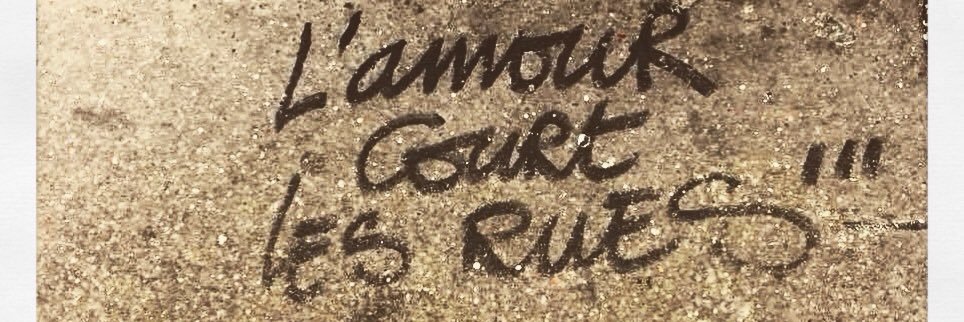 L'amouR
CouRt
lES RUES'''